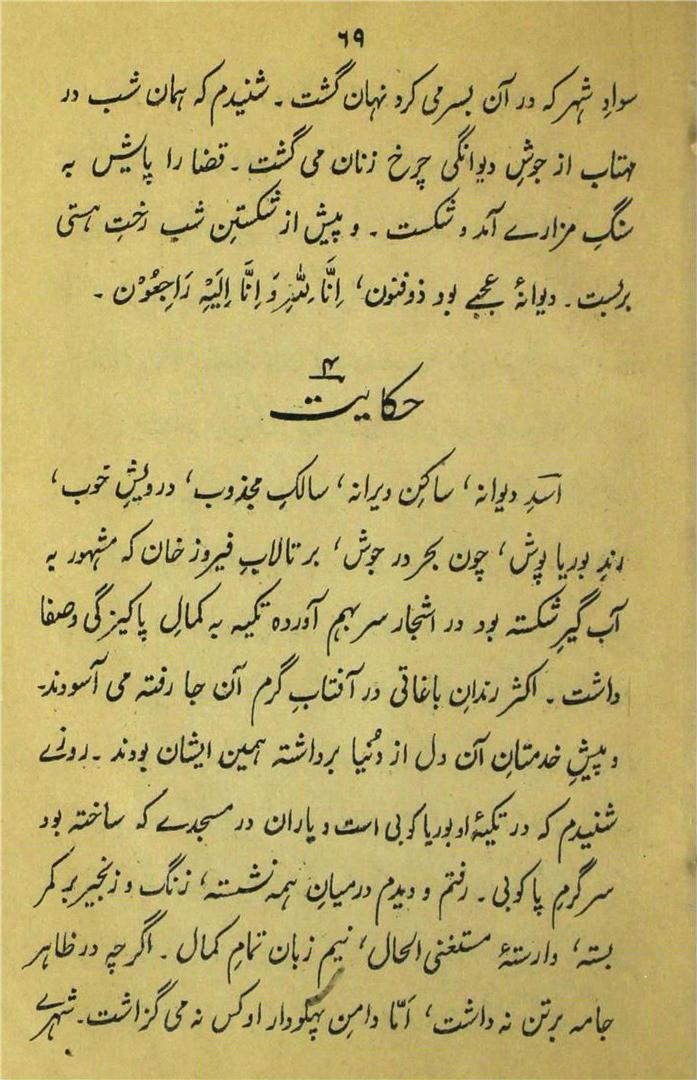 ۶۹
سوادِ شہر کہ در آن بسر می کرد نہان گشت ۔ شنیدم کہ ہمان شب در
مہتاب از جوشِ دیوانگی چرخ زنان می گشت ۔ قضا را پایش بہ
سنگِ مزارے آمد و شکست ۔ و پیش از شکستنِ شب رختِ ہستی
بربست ۔ دیوانۂ عجبے بود ذوفنون، اِنَّا لِلّٰہِ وَ اِنَّا اِلَیْہِ رَاجِعُوْن ۔
حکایت ۴
اسدِ دیوانہ، ساکنِ ویرانہ، سالکِ مجذوب، درویشِ خوب،
رندِ بوریا پوش، چون بحر در جوش، بر تالابِ فیروز خان کہ مشہور بہ
آب گیرِ شکستہ بود در اشجار سر بہم آوردہ تکیہ بہ کمالِ پاکیزگی و صفا
داشت ۔ اکثر رندانِ باغاتی در آفتابِ گرم آن جا رفتہ می آسودند۔
و پیشِ خدمتانِ آن دل از دُنیا برداشتہ ہمین ایشان بودند ۔ روزے
شنیدم کہ در تکیۂ او بوریا کوبی است و یاران در مسجدے کہ ساختہ بود
سرگرمِ پا کوبی ۔ رفتم و دیدم درمیانِ ہمہ نشستہ، زنگ و زنجیر بر کمر
بستہ، وارستۂ مستغنی الحال، نیم زبان تمامِ کمال ۔ اگرچہ در ظاہر
جامہ بر تن نہ داشت، اَمّا دامنِ پہلودار او کس نہ می گزاشت۔ شہرے